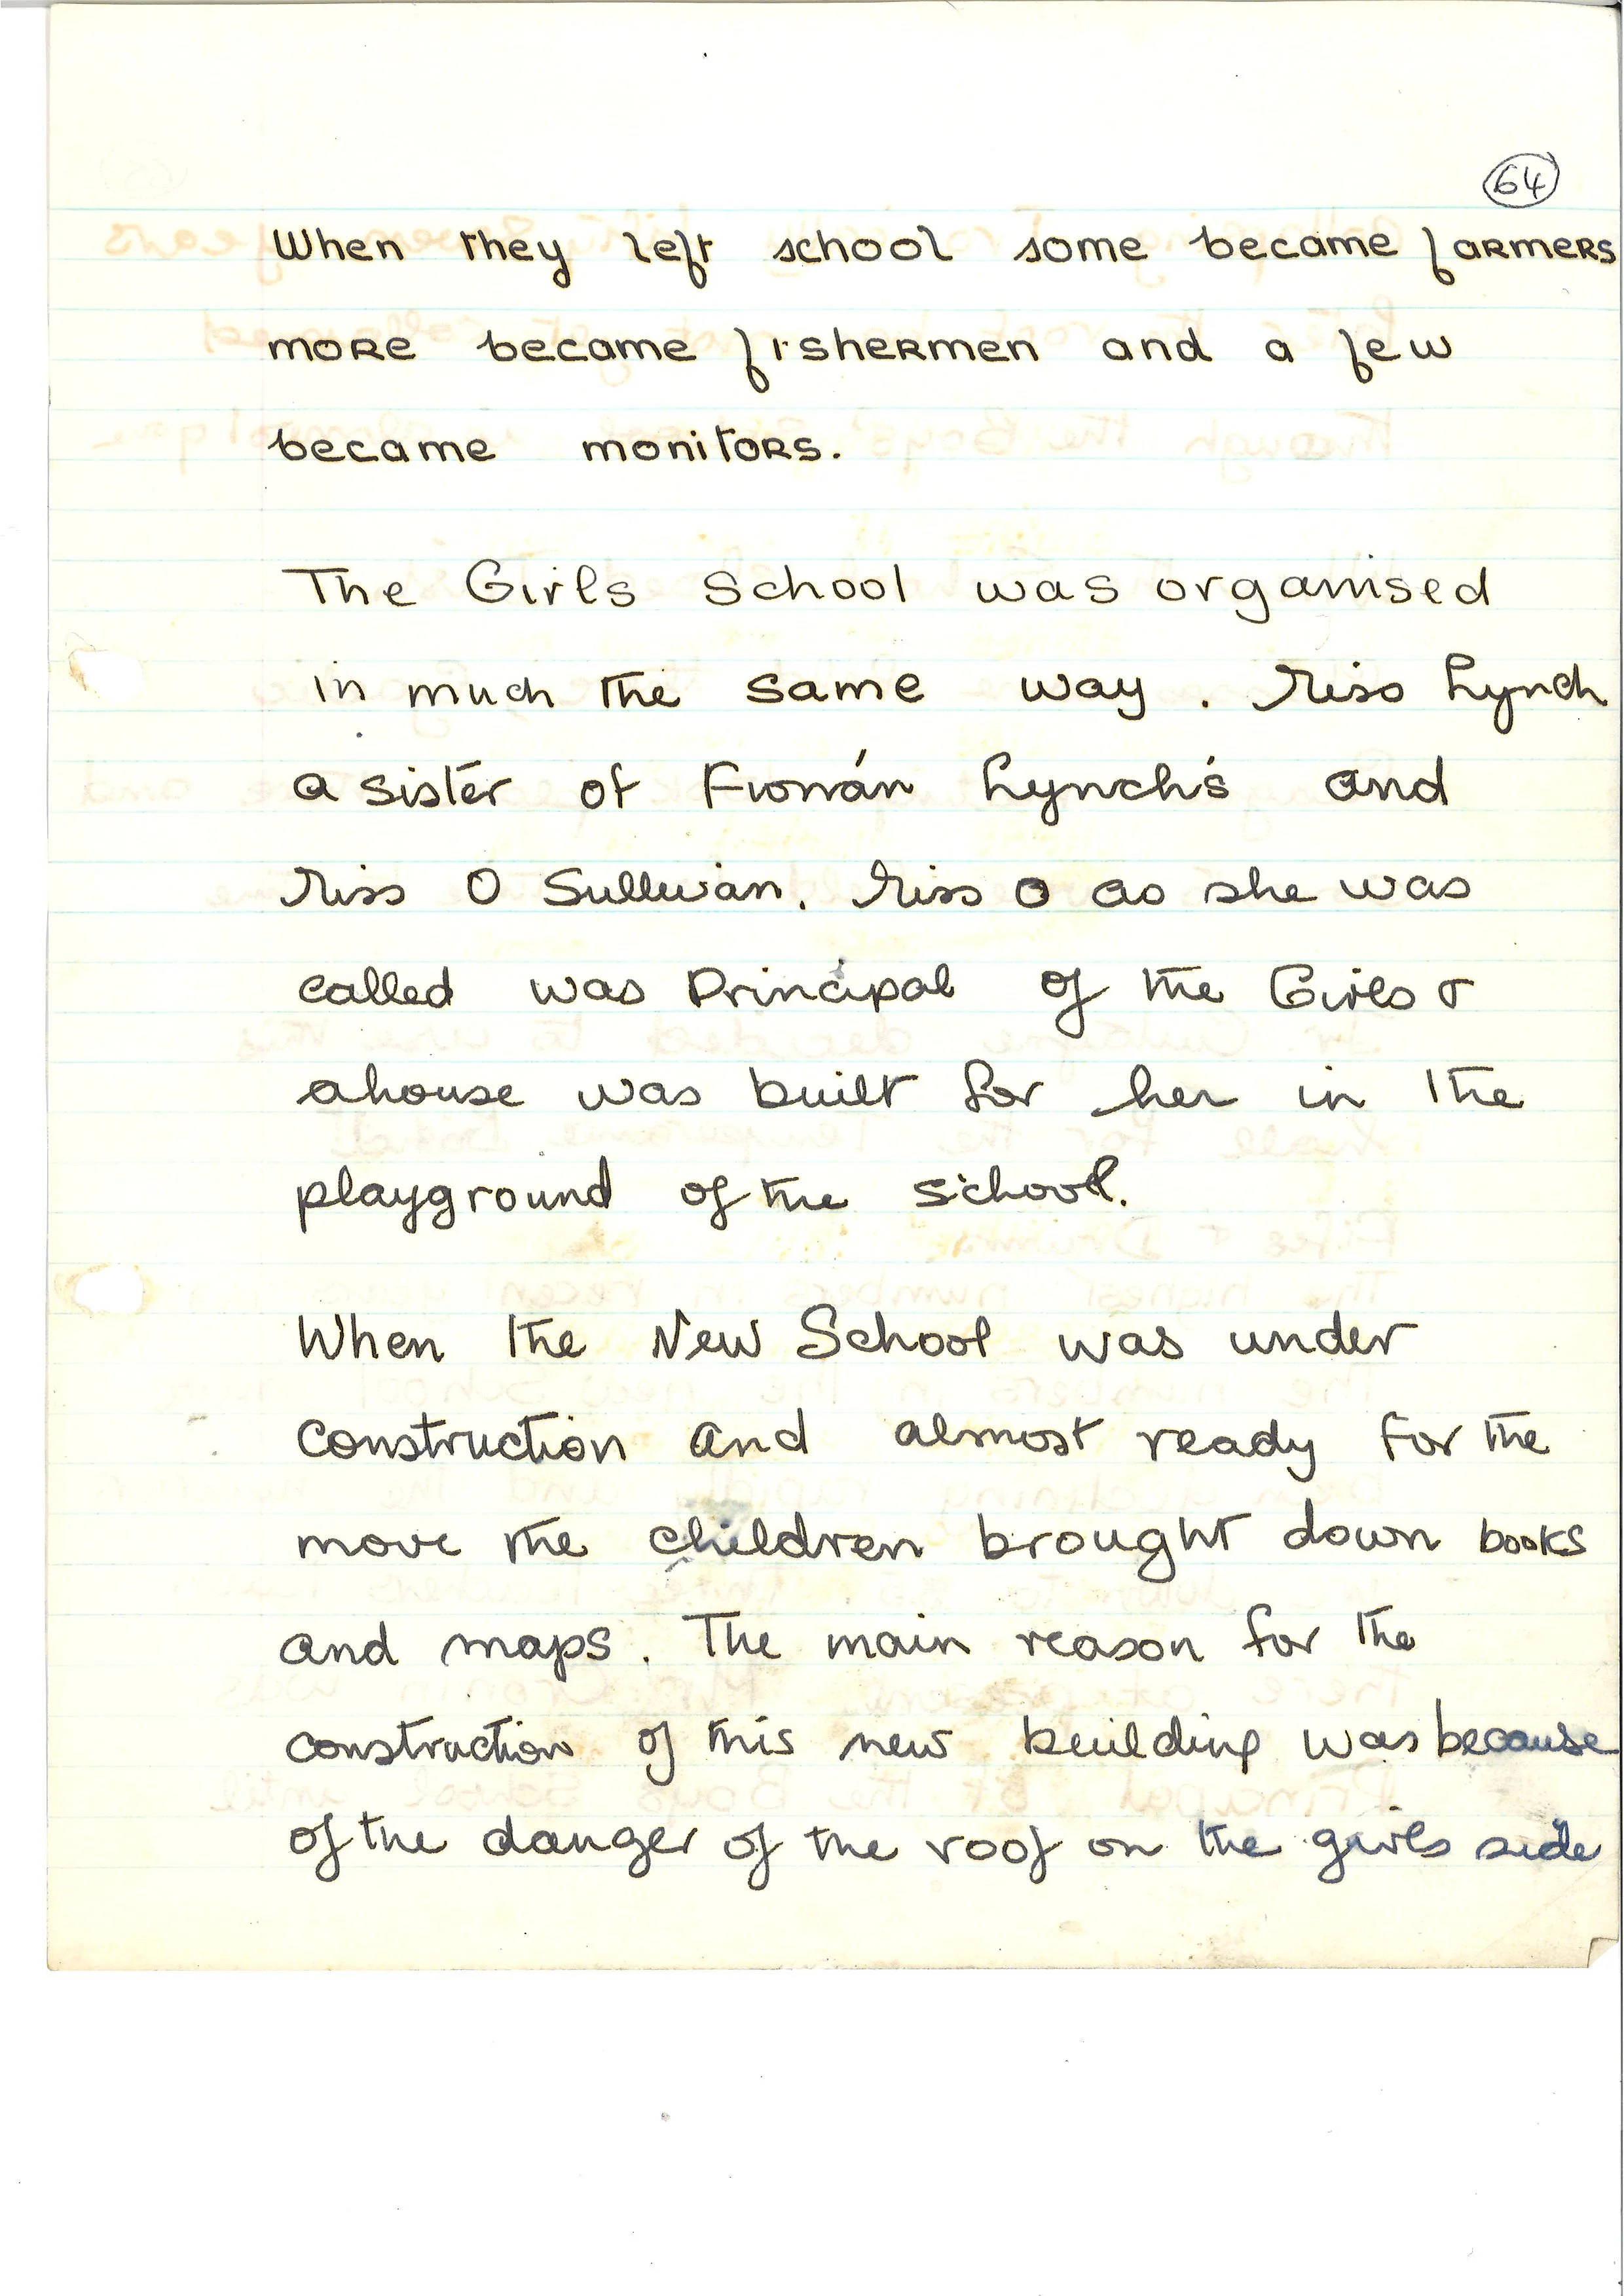 64
When they left school some became farmers
more became fishermen and a few
became monitors.
The Girls School was organised
in much the same way. Miss Lynch
a sister of Fionán Lynch's and
Miss O Sullivan. Miss O as she was
called was Principal of the Girls &
a house was built for her in the
playground of the school.
When the New School was under
construction and almost ready for the
move the children brought down books
and maps. The main reason for the
construction of this new building was because
of the danger of the roof on the girls side